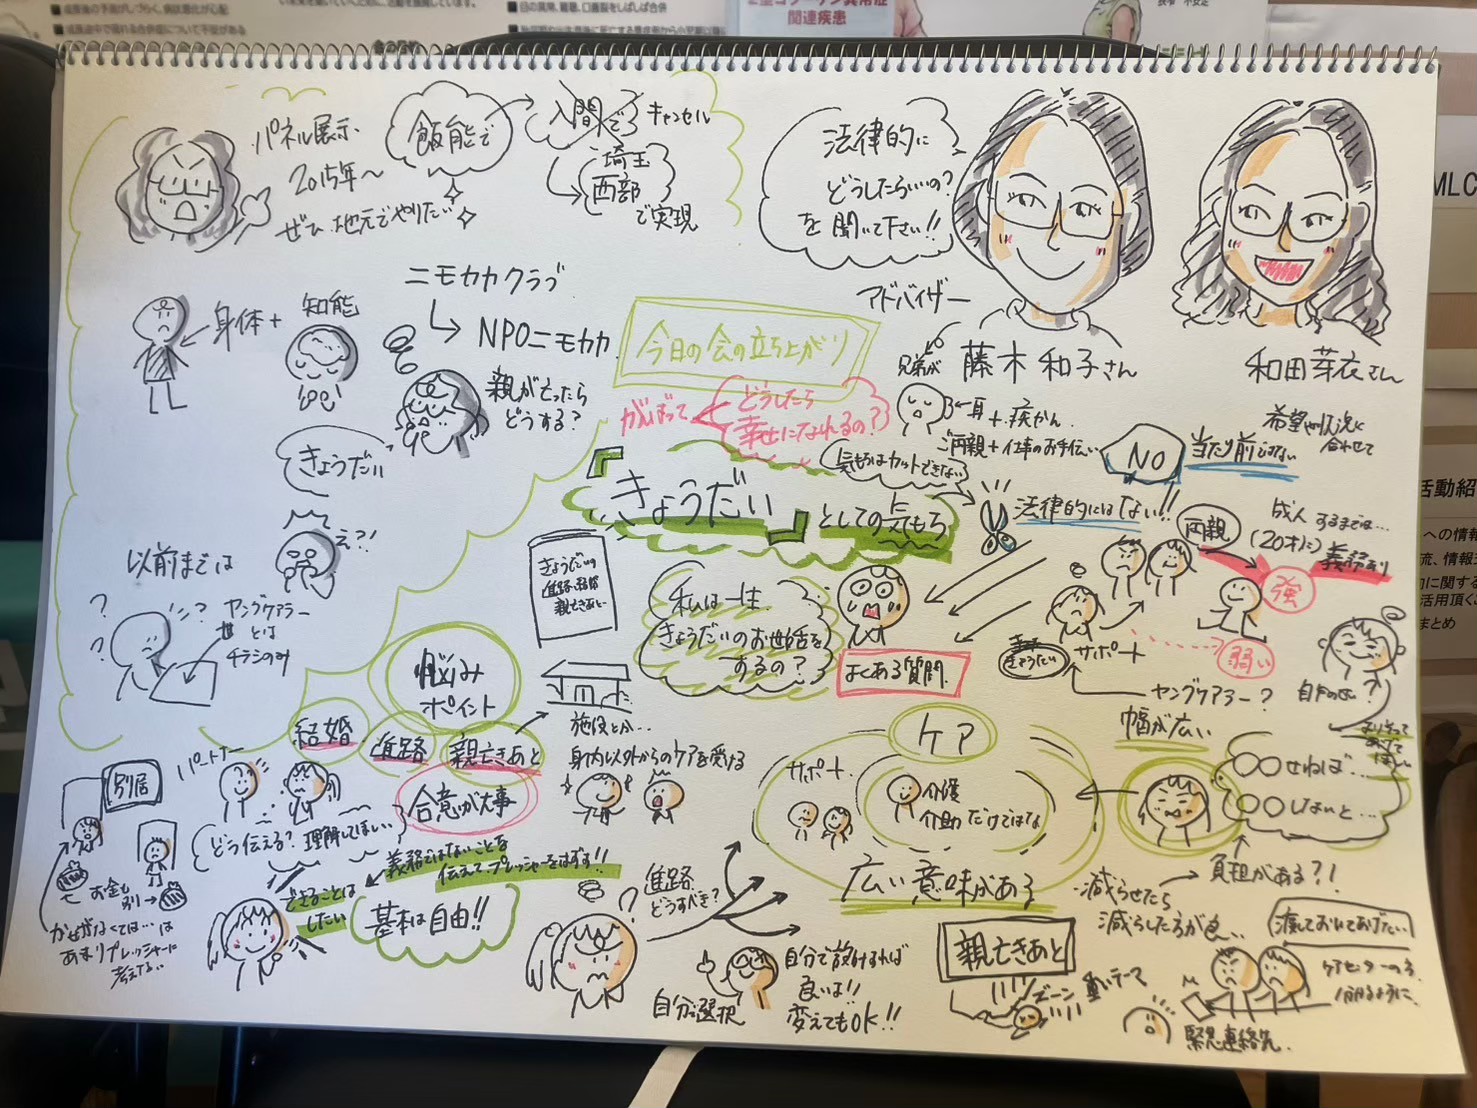 関連疾患
MLC
活動紹
パネル展示
2015年〜
ぜひ地元でやりたい
飯能で
入間で
キャンセル
埼玉
西部
で実現
法律的に
どうしたらいいの?
を聞いて下さい!!
アドバイザー
藤木和子さん
和田芽衣さん
ニモカカクラブ
NPOニモカカ
今日の会の立ち上がり
身体+
知能
親が亡ったら
どうする?
きょうだい
え?!
以前までは
ヤングケアラー
とは
チラシのみ
がんばって
どうしたら
幸せになれるの?
兄弟が
ご両親+仕事のお手伝い
気もちはカットできない
NO
当たり前じゃない
希望や状況に
合わせて
『きょうだい』
としての気もち
法律的にはない!!
両親
成人するまでは…
(20才に)
義務あり
強
弱い
きょうだい
サポート
ヤングケアラー?
幅が広い
自分のせい?
きょうだいの
親亡きあと
私は一生
きょうだいのお世話を
するの?
よくある質問
悩み
ポイント
結婚
進路
親亡きあと
合意が大事
施設とか…
身内以外からのケアを受ける
別居
パートナー
どう伝える?理解してほしい
お金も
別
かせがなくては…は
あまりプレッシャーに
考えない
義務ではないことを
伝えて、プレッシャーをはずす!!
できることは
したい
基本は自由!!
進路
どうすべき?
自分で選択
良いは!!
変えてもOK!!
ケア
サポート
介護
介助だけではな
広い意味がある
〇〇せねば…
〇〇しないと…
負担がある?!
減らせたら
親亡きあと
ズーン
重いテーマ
渡しておいてあげたい
緊急連絡先